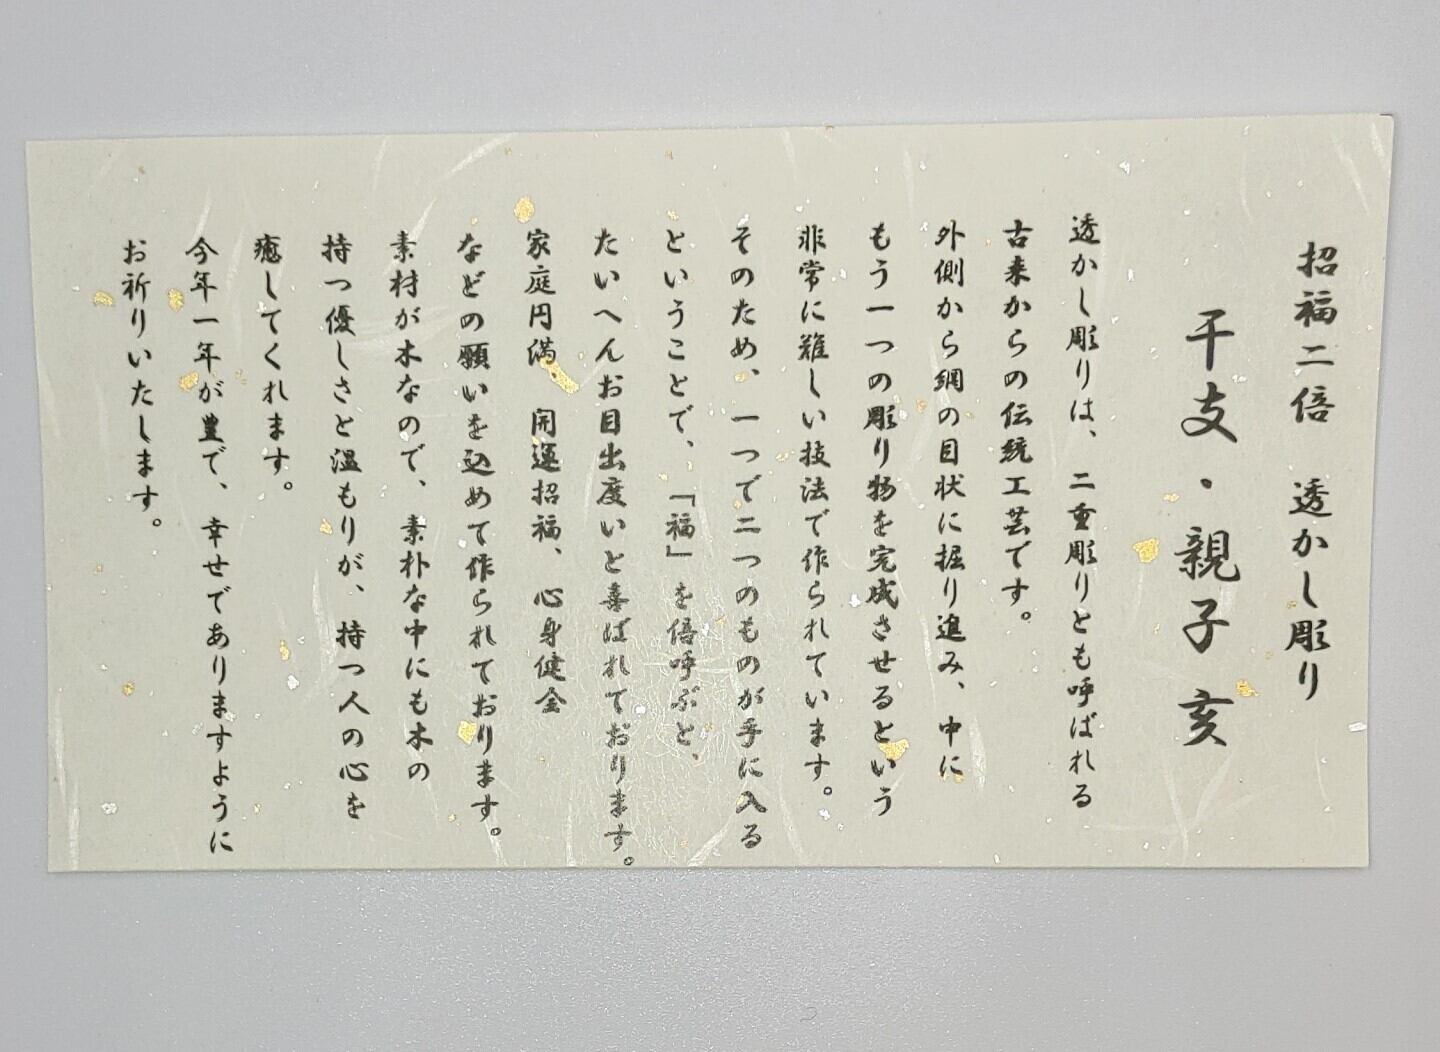 招福二倍　透かし彫り
干支・親子亥
透かし彫りは、二重彫りとも呼ばれる
古来からの伝統工芸です。
外側から網の目状に掘り進み、中に
もう一つの彫り物を完成させるという
非常に難しい技法で作られています。
そのため、一つで二つのものが手に入る
ということで、「福」を倍呼ぶと、
たいへんお目出度いと喜ばれております。
家庭円満、開運招福、心身健全
などの願いを込めて作られております。
素材が木なので、素朴な中にも木の
持つ優しさと温もりが、持つ人の心を
癒してくれます。
今年一年が豊で、幸せでありますように
お祈りいたします。